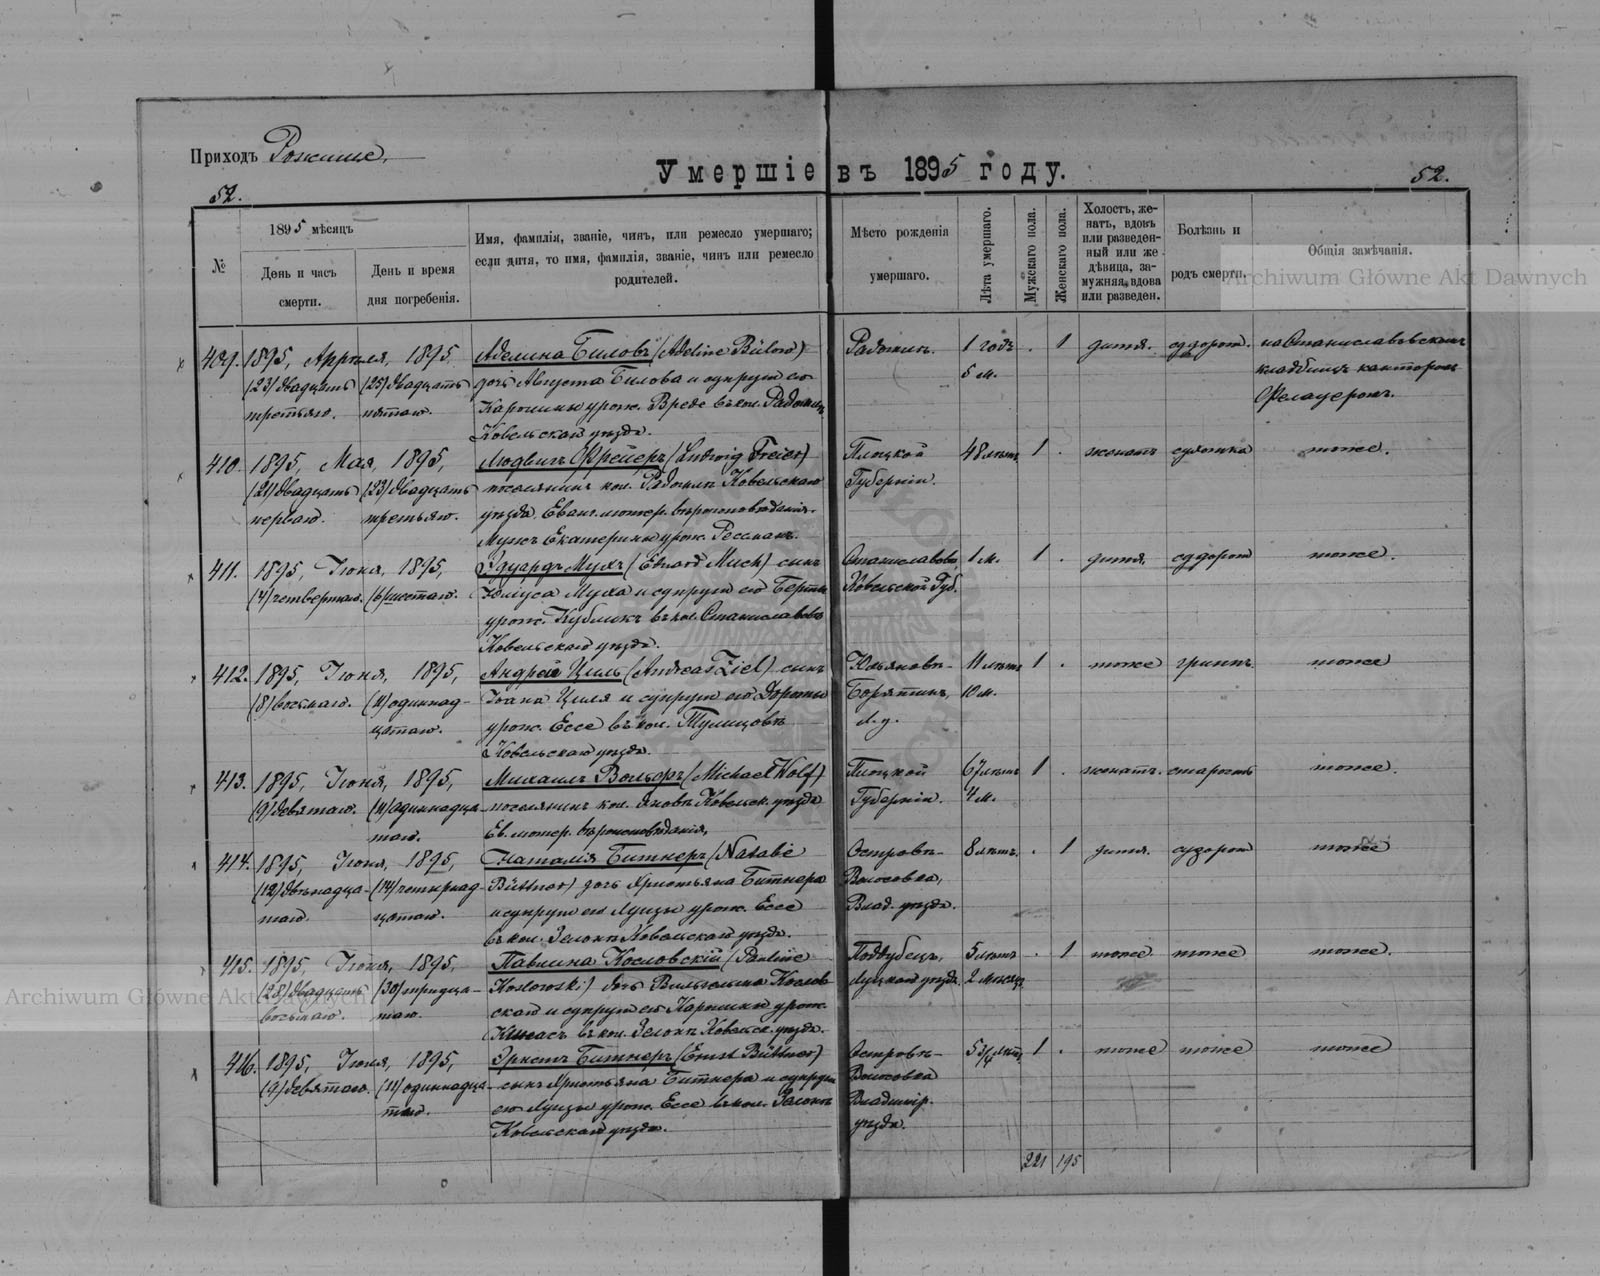 Приходъ Рожище.
Умершіе въ 1895 году.
52.
52.
№
1895 мѣсяцъ
День и часъ смерти.
День и время дня погребенія.
Имя, фамилія, званіе, чинъ, или ремесло умершаго;
если дитя, то имя, фамилія, званіе, чинъ или ремесло
родителей.
Мѣсто рожденія
умершаго.
Лѣта умершаго.
Мужскаго пола.
Женскаго пола.
Холостъ, же-
натъ, вдовъ
или разведен-
ный или же
дѣвица, за-
мужняя, вдова
или разведен.
Болѣзнь и
родъ смерти.
Общія замѣчанія.
Archiwum Główne Akt Dawnych
409. 1895, Апрѣля, 1895 Аделина Биловъ (Adeline Bülow) Радомин. 1 годъ . 1 дитя. судорог. на Станиславовскомъ
(23) двадцать (25) двадцать дочь Августа Билова и супруги его 5 м. кладбищѣ канторомъ
третьяго. пятаго. Каролины урож. Вреде въ кол. Радомин
Ковельскаго уѣзда.
410. 1895, Мая, 1895, Людвигъ Фрейеръ (Ludwig Freier) Плоцкой 48 лѣтъ 1 . женатъ тоже.
(21) двадцать (23) двадцать поселянинъ кол. Радомин Ковельскаго Губерніи.
перваго. третьяго. уѣзда, Еванг. лютер. вѣроисповѣданія.
Мужъ Екатерины урож. Рессманъ.
411. 1895, Іюня, 1895, Эдуардъ Мухъ (Eduard Much) сынъ Станиславовъ, 1 м. 1 . дитя. судорог тоже.
(4) четвертаго. (6) шестаго. Юлиуса Муха и супруги его Берты Ковельской Губ.
урож. Кубликъ въ кол. Станиславовъ
Ковельскаго уѣзда.
412. 1895, Іюня, 1895, Андрей Циль (Andreas Ziel) сынъ 11 лѣтъ 1 . тоже гриппъ тоже
(8) восьмаго. (11) одиннад- Іоана Циля и супруги его Доротеи Борятинъ, 10 м.
цатаго. урож. Ессе въ кол. Л. у.
Ковельскаго уѣзда.
413. 1895, Іюня, 1895, Михаилъ Вольфъ (Michael Wolf) Плоцкой 67 лѣтъ 1 . женатъ. старость тоже.
(9) девятаго. (11) одиннадца- поселянинъ кол. Яновъ Ковельск. уѣзда Губерніи. 4 м.
таго. Ев. лютер. вѣроисповѣданія,
414. 1895, Іюня, 1895, Наталія Битнеръ (Natalie Островъ- 8 лѣтъ. . 1 дитя. судорог тоже
(12) двѣнадца- (14) четырнад- Büttner) дочь Христьяна Битнера Волосовка,
таго. цатаго. и супруги его Луизы урож. Ессе Влад. уѣзда.
въ кол. Ковельскаго уѣзда.
415. 1895, Іюня, 1895, Павлина Кословскій (Pauline Поддубецъ, 5 лѣтъ . 1 тоже тоже тоже.
(28) двадцать (30) тридца- Koslowski) дочь Вильгельма Козлов- Луцкаго уѣзда. 2 мѣсяца
восьмаго. таго. скаго и супруги его Каролины урож.
въ кол. Ковельск. уѣзда.
Archiwum Główne Akt Dawnych
416. 1895, Іюля, 1895, Эрнстъ Битнеръ (Ernst Büttner) Островъ- 5 3/4 лѣтъ 1 . тоже тоже тоже
(9) девятаго. (11) одиннадца- сынъ Христьяна Битнера и супруги Волосовка
таго. его Луизы урож. Ессе въ кол. Владимір.
Ковельскаго уѣзда. уѣзда.
221 195